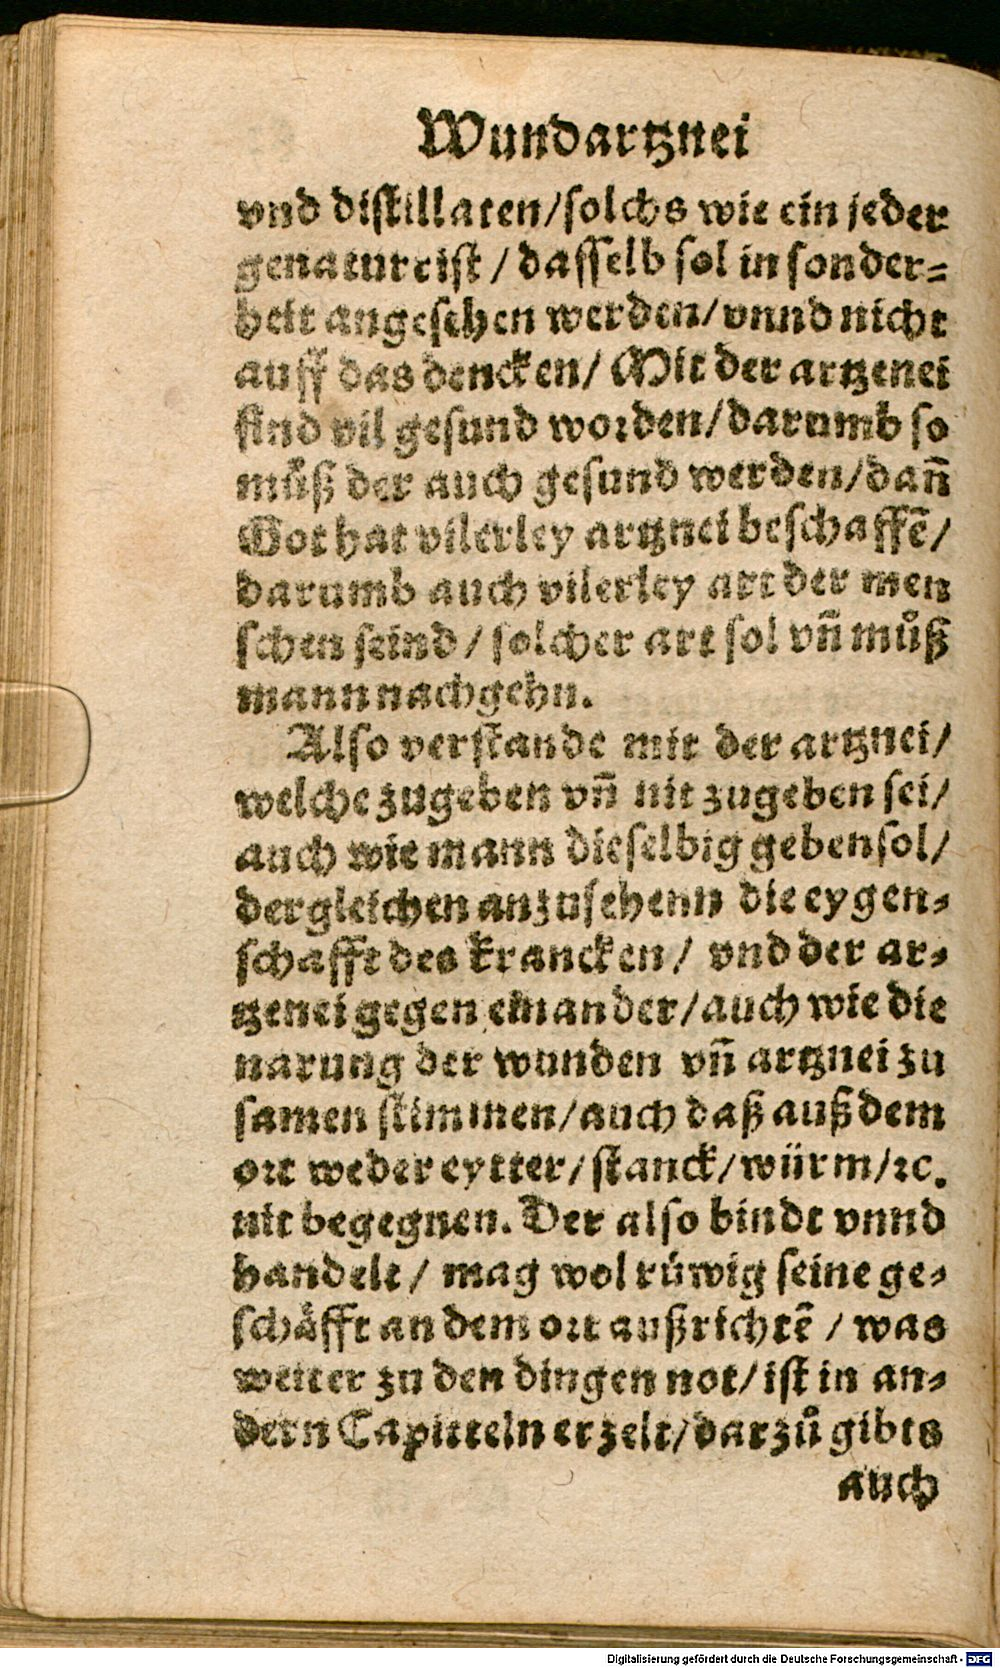 Wundartznei
vnd distillaten/solchs wie ein jeder
genaturt ist / dasselb sol in sonder=
heit angesehen werden/vnnd nicht
auff das dencken/ Mit der artzenei
sind vil gesund worden/darumb so
můß der auch gesund werden/dañ
Got hat vilerley artznei beschaffē/
darumb auch vilerley art der men
schen seind / solcher art sol vñ můß
mann nachgehn.
Also verstande mit der artznei/
welche zugeben vñ nit zugeben sei/
auch wie mann dieselbig geben sol/
dergleichen anzusehenn die eygen=
schafft des krancken / vnd der ar=
tzenei gegen einander/auch wie die
narung der wunden vñ artznei zu
samen stimmen/auch daß auß dem
ort weder eytter/stanck/würm/ꝛc.
nit begegnen. Der also bindt vnnd
handelt / mag wol rüwig seine ge=
schäfft an dem ort außrichtē / was
weiter zu den dingen not/ist in an=
dern Capitteln erzelt/darzů gibts
auch
Digitalisierung gefördert durch die Deutsche Forschungsgemeinschaft - DFG